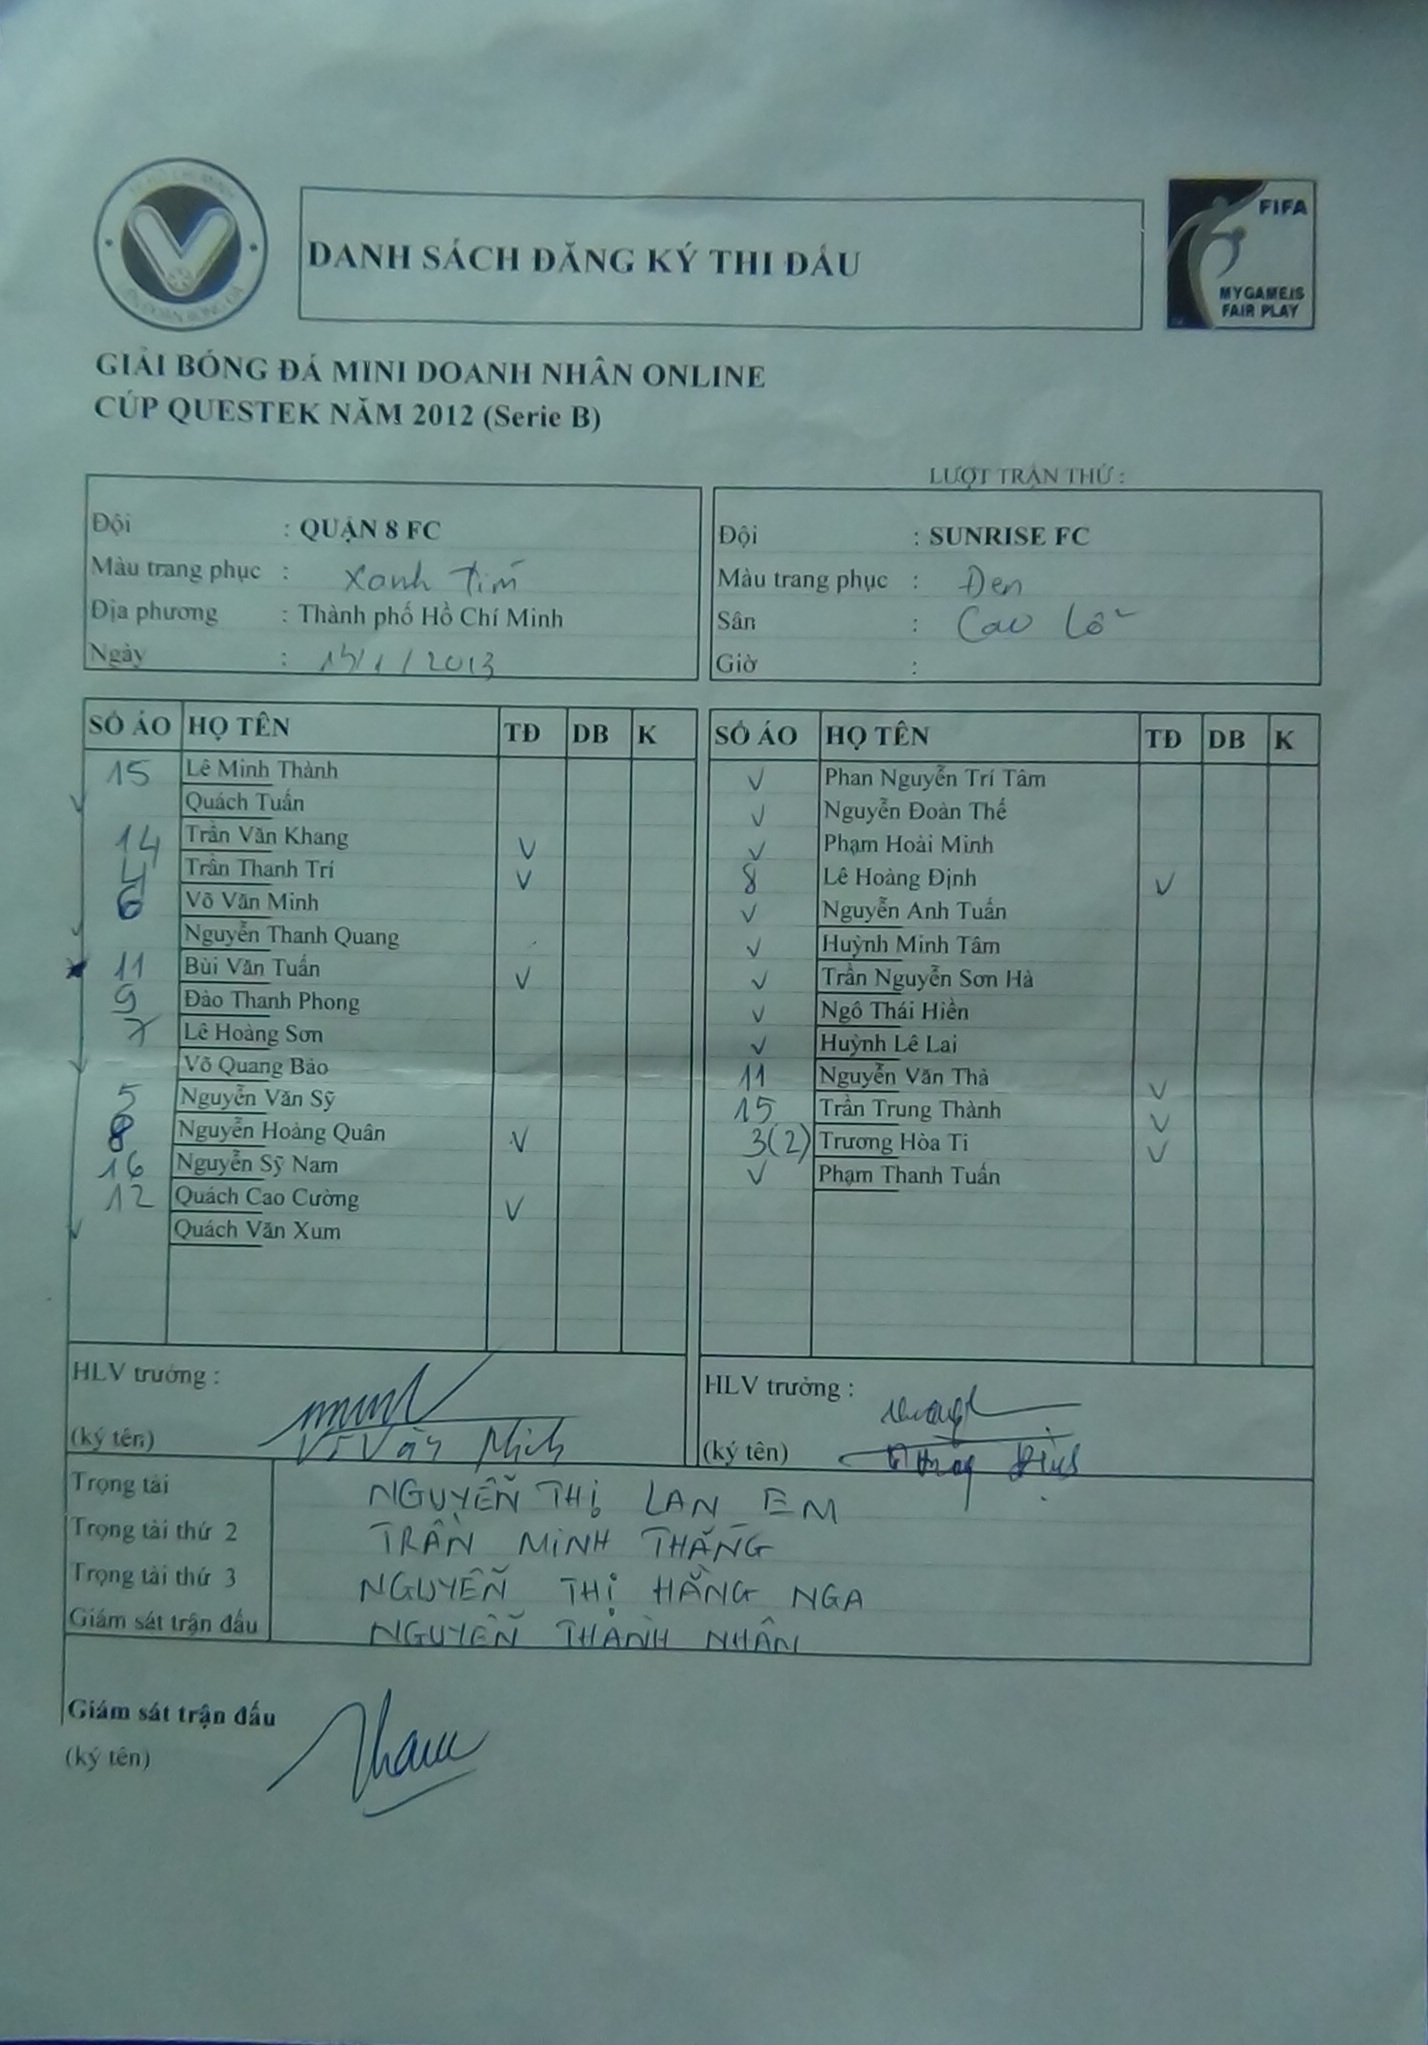 FIFA
MY GAME IS
FAIR PLAY
DANH SÁCH ĐĂNG KÝ THI ĐẤU
GIẢI BÓNG ĐÁ MINI DOANH NHÂN ONLINE
CÚP QUESTEK NĂM 2012 (Serie B)
LƯỢT TRẬN THỨ :
Đội : QUẬN 8 FC
Màu trang phục : Xanh Tím
Địa phương : Thành phố Hồ Chí Minh
Ngày : /1/2013
Đội : SUNRISE FC
Màu trang phục : Đen
Sân : Cao Lỗ
Giờ :
SỐ ÁO HỌ TÊN TĐ DB K
15 Lê Minh Thành
v Quách Tuấn
14 Trần Văn Khang v
4 Trần Thanh Trí v
6 Võ Văn Minh
v Nguyễn Thanh Quang
11 Bùi Văn Tuấn v
9 Đào Thanh Phong
7 Lê Hoàng Sơn
v Võ Quang Bảo
5 Nguyễn Văn Sỹ
8 Nguyễn Hoàng Quân v
16 Nguyễn Sỹ Nam
12 Quách Cao Cường v
v Quách Văn Xum
SỐ ÁO HỌ TÊN TĐ DB K
v Phan Nguyễn Trí Tâm
v Nguyễn Đoàn Thế
v Phạm Hoài Minh
8 Lê Hoàng Định v
v Nguyễn Anh Tuấn
v Huỳnh Minh Tâm
v Trần Nguyễn Sơn Hà
v Ngô Thái Hiền
v Huỳnh Lê Lai
11 Nguyễn Văn Thả v
15 Trần Trung Thành v
3(2) Trương Hòa Ti v
v Phạm Thanh Tuấn
HLV trưởng :
(ký tên) Võ Văn Minh
HLV trưởng :
(ký tên)
Trọng tài NGUYỄN THỊ LAN EM
Trọng tài thứ 2 TRẦN MINH THẮNG
Trọng tài thứ 3 NGUYỄN THỊ HẰNG NGA
Giám sát trận đấu NGUYỄN THÀNH NHÂN
Giám sát trận đấu
(ký tên)